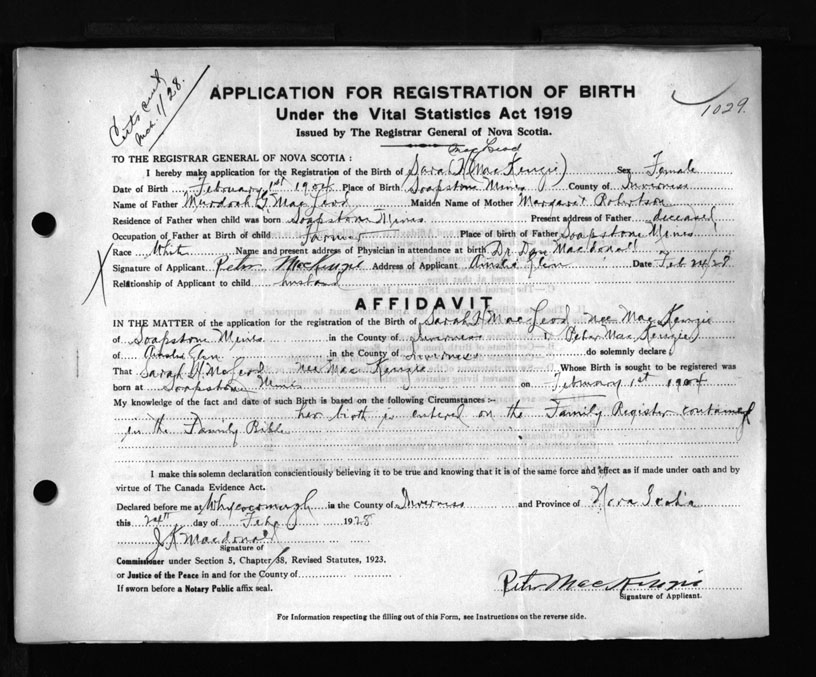 Certs sent
Mch. 1/28.
1029.
APPLICATION FOR REGISTRATION OF BIRTH
Under the Vital Statistics Act 1919
Issued by The Registrar General of Nova Scotia.
TO THE REGISTRAR GENERAL OF NOVA SCOTIA :
MacLeod
I hereby make application for the Registration of the Birth of Sarah (MacKenzie) Sex Female
Date of Birth February 1st 1904 Place of Birth Soapstone Mines County of Inverness
Name of Father Murdoch MacLeod Maiden Name of Mother Margaret Robertson
Residence of Father when child was born Soapstone Mines Present address of Father deceased
Occupation of Father at Birth of child Farmer Place of birth of Father Soapstone Mines
Race White Name and present address of Physician in attendance at birth Dr. Dan Macdonald
Signature of Applicant Peter MacKenzie Address of Applicant Ainslie Glen Date Feb 24/28
Relationship of Applicant to child husband
AFFIDAVIT
IN THE MATTER of the application for the registration of the Birth of Sarah MacLeod nee MacKenzie
of Soapstone Mines in the County of Inverness I Peter MacKenzie
of Ainslie Glen in the County of Inverness do solemnly declare:
That Sarah McLeod nee MacKenzie Whose Birth is sought to be registered was
born at Soapstone Mines on February 1st 1904
My knowledge of the fact and date of such Birth is based on the following Circumstances :-
her birth is entered on the Family Register contained
in the Family Bible
I make this solemn declaration conscientiously believing it to be true and knowing that it is of the same force and effect as if made under oath and by
virtue of The Canada Evidence Act.
Declared before me at Whycocomagh in the County of Inverness and Province of Nova Scotia
this 24th day of Feb 1928
J K Macdonald
Signature of
Commissioner under Section 5, Chapter 38, Revised Statutes, 1923.
or Justice of the Peace in and for the County of
If sworn before a Notary Public affix seal.
Peter MacKenzie
Signature of Applicant.
For Information respecting the filling out of this Form, see Instructions on the reverse side.